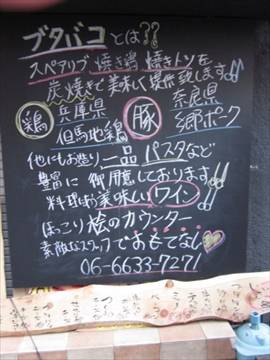 ブタバコとは??
スペアリブ 焼き鶏 焼きトン を
炭焼きで美味しく提供致します
鶏 兵庫県 但馬地鶏
豚 奈良県 郷ポーク
他にもお造り 一品 パスタなど
豊富に 御用意しております
料理は美味しいワイン
ほっこり桧のカウンター
素敵なスタッフでおもてなし
06-6633-7271